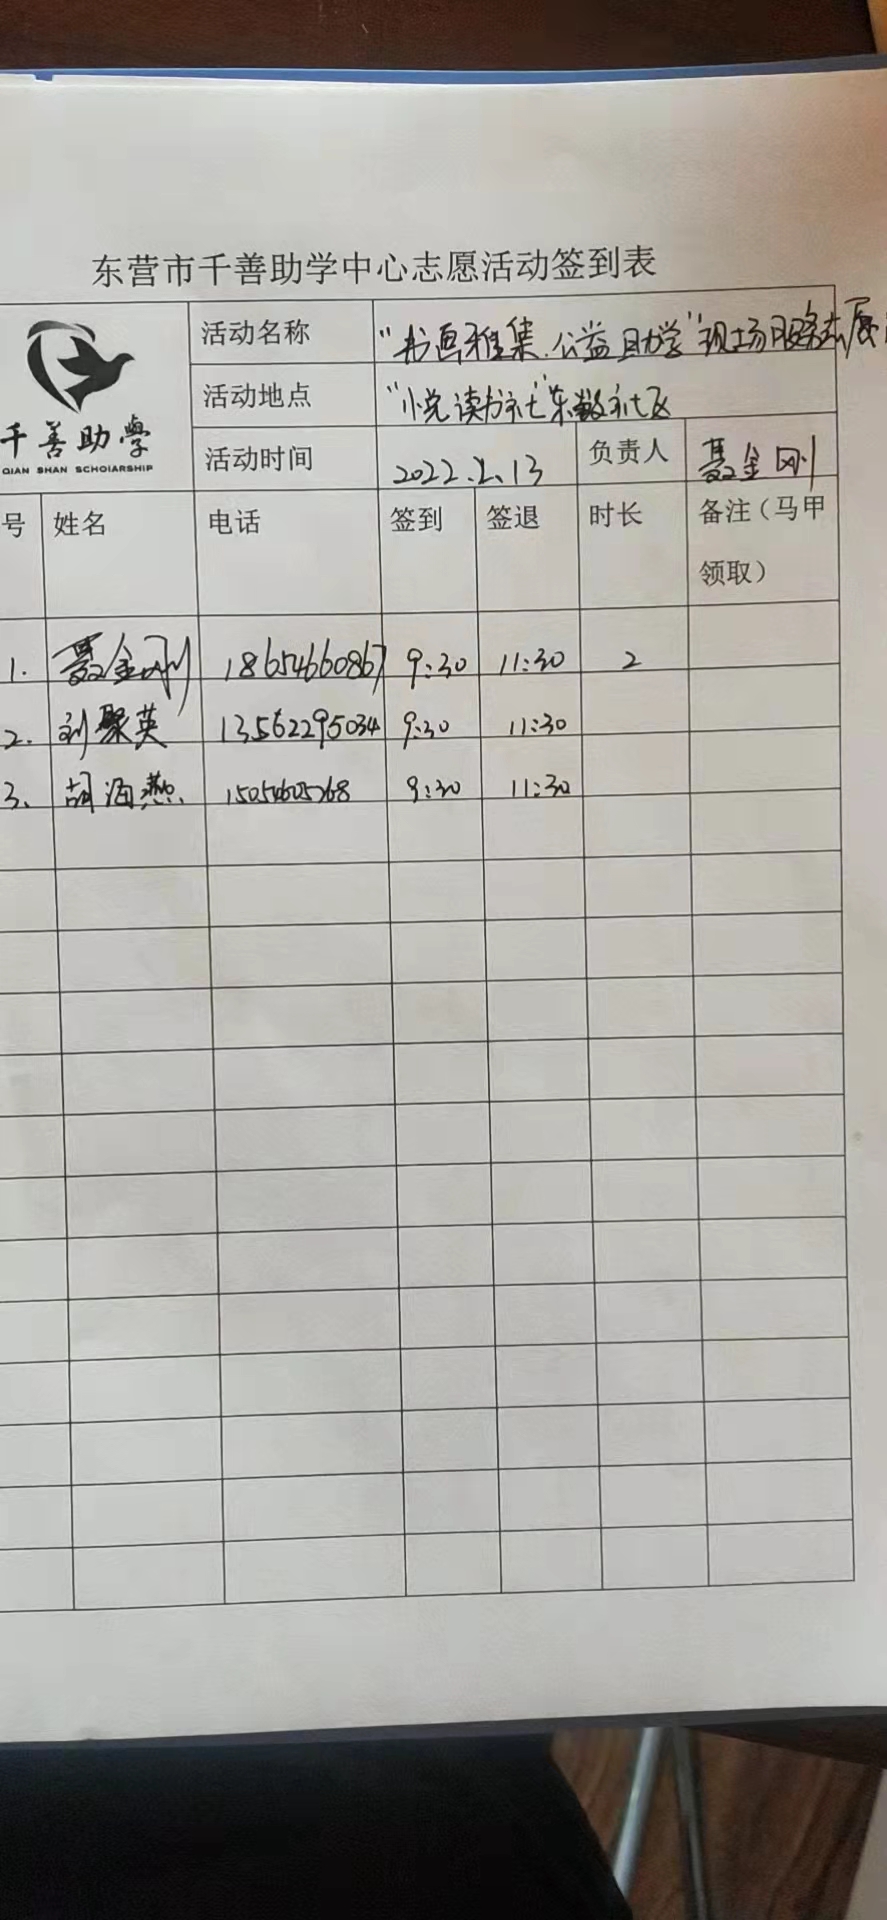 东营市千善助学中心志愿活动签到表
千善助學
QIAN SHAN SCHOIARSHIP
活动名称 "书画雅集.公益助学"现场服务志愿
活动地点 "小悦读书社"东数社区
活动时间 2022.2.13 负责人 聂金刚
号 姓名 电话 签到 签退 时长 备注（马甲
领取）
1. 聂金刚 18654660867 9:30 11:30 2
2. 刘聚英 13562295034 9:30 11:30
3. 胡海燕 15054605268 9:30 11:30